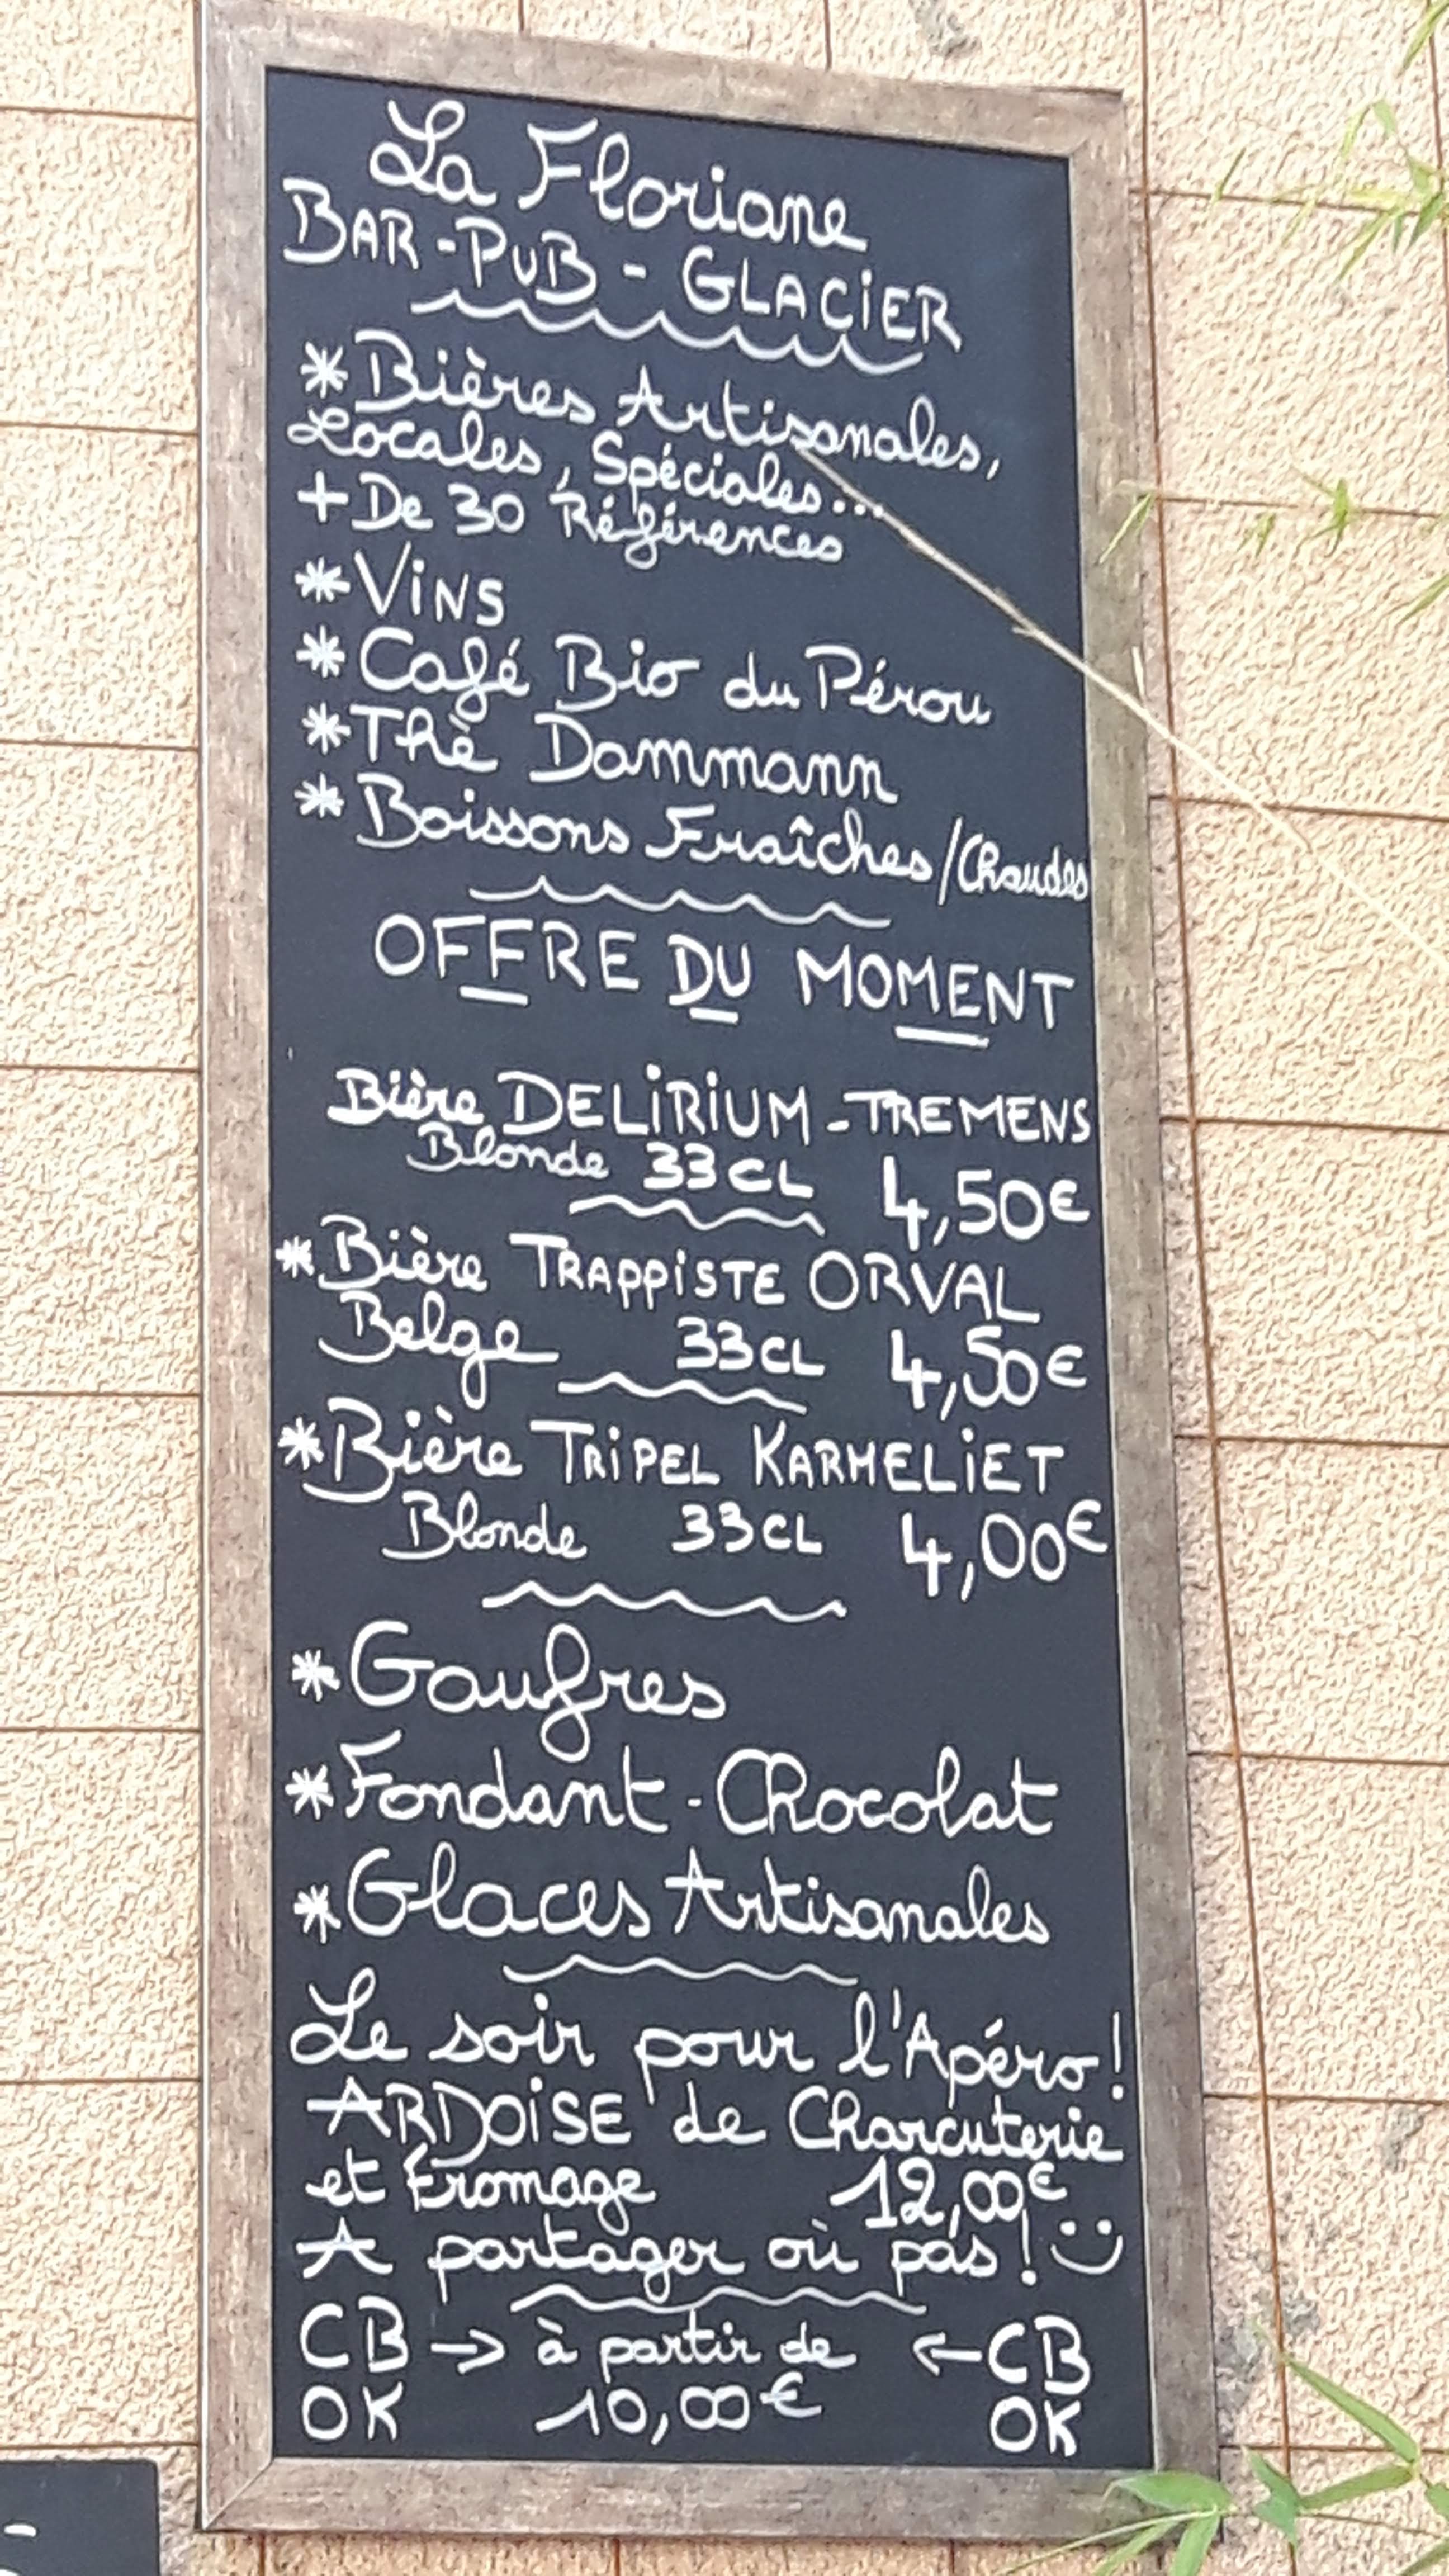 La Floriane
BAR-PUB-GLACIER
* Bières Artisanales,
Locales, Spéciales...
+ De 30 Références
* ViNS
* Café Bio du Pérou
* Thè Dammann
* Boissons Fraîches/Chaudes
OFFRE DU MOMENT
Bière DELIRIUM-TREMENS
Blonde 33CL 4,50€
* Bière TRAPPISTE ORVAL
Belge 33CL 4,50€
* Bière TRIPEL KARMELIET
Blonde 33CL 4,00€
* Gaufres
* Fondant-Chocolat
* Glaces Artisanales
Le soir pour l'Apéro!
ARDOISE de Charcuterie
et Fromage 12,00€
A partager où pas! :)
CB → à partir de ← CB
OK 10,00€ OK